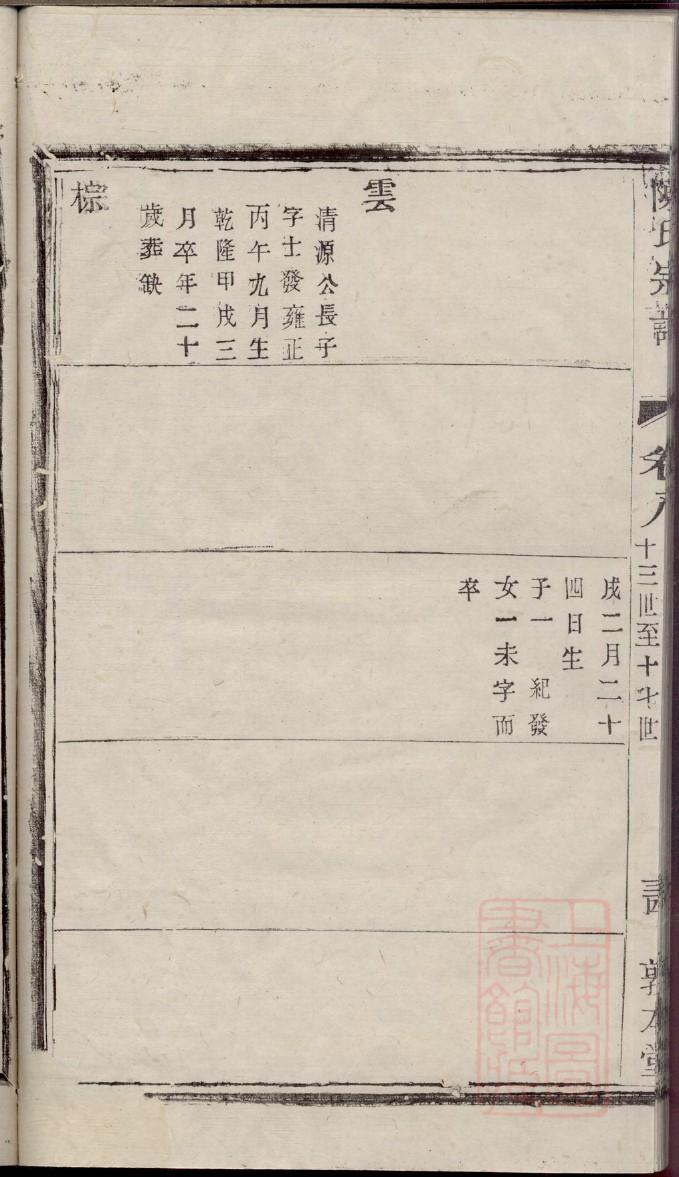 陳氏宗譜
卷八
十三世至十七世
敦本堂
雲
清源公長子
字士發雍正
丙午九月生
乾隆甲戌三
月卒年二十
歲葬缺
棕
戌二月二十
四日生
子一 紀發
女一未字而
卒
上海圖
書館藏